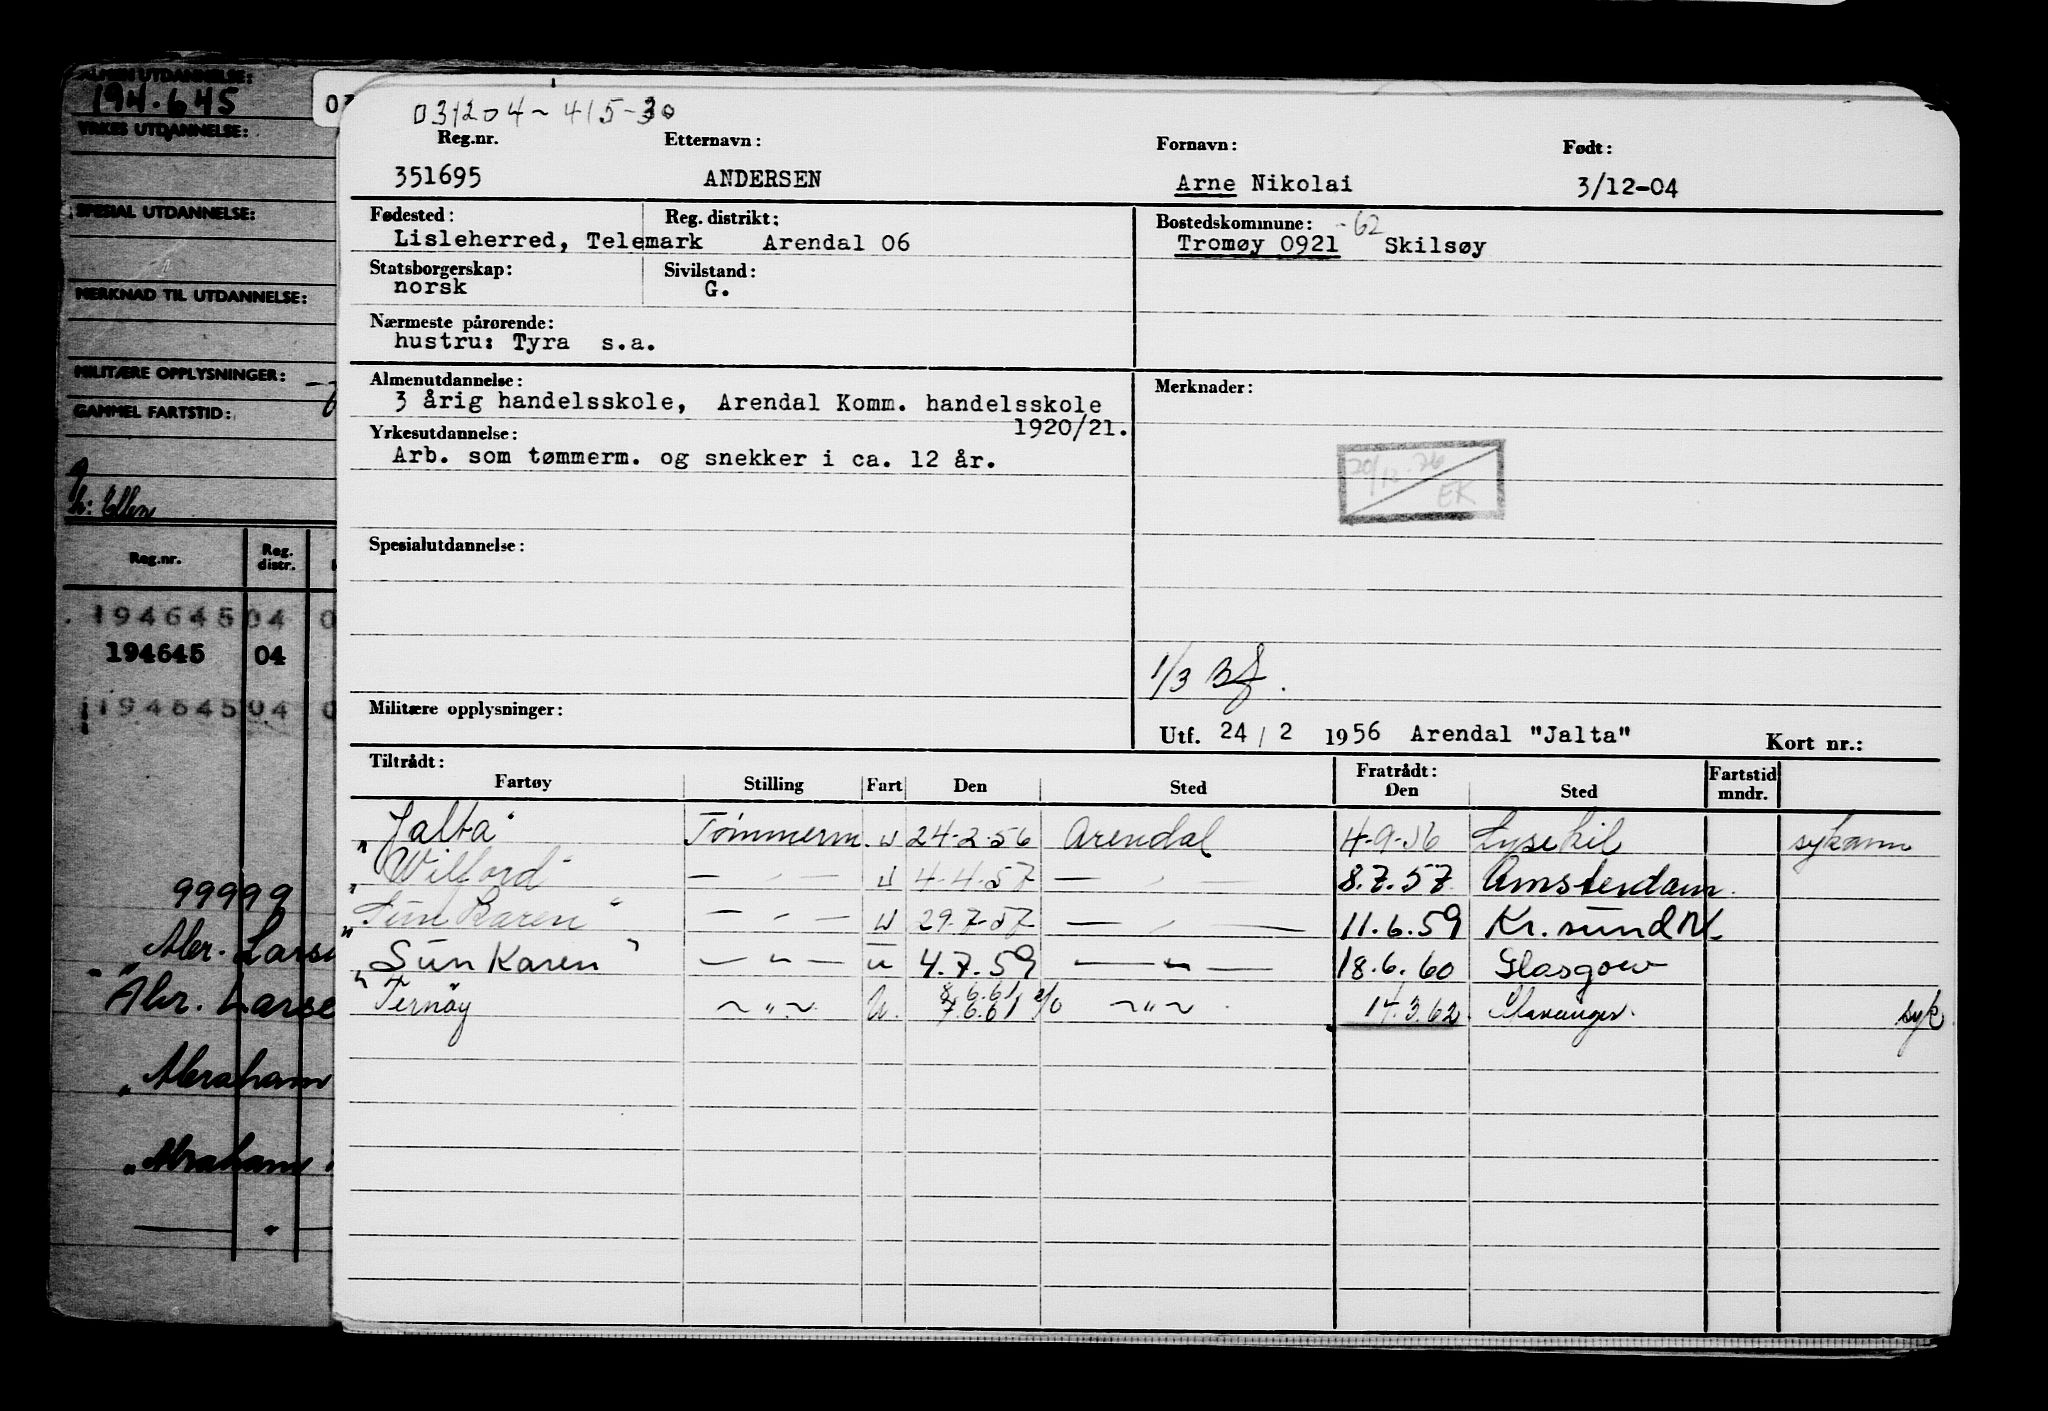 ALMEN UTDANNELSE:
194.645
YRKES UTDANNELSE:
SPESIAL UTDANNELSE:
MERKNAD TIL UTDANNELSE:
MILITÆRE OPPLYSNINGER:
GAMMEL FARTSTID:
h: Ellen
Reg.nr. Reg. distr.
194645 04 0
194645 04
194645 04 0
99999
"Abr. Larse
"Abr. Larse
"Abraham
"Abraham
03
031204-415-30
Reg.nr. Etternavn: Fornavn: Født:
351695 ANDERSEN Arne Nikolai 3/12-04
Fødested: Reg. distrikt: Bostedskommune: -62
Lisleherred, Telemark Arendal 06 Tromøy 0921 Skilsøy
Statsborgerskap: Sivilstand:
norsk G.
Nærmeste pårørende:
hustru: Tyra s.a.
Almenutdannelse: Merknader:
3 årig handelsskole, Arendal Komm. handelsskole
1920/21.
Yrkesutdannelse:
Arb. som tømmerm. og snekker i ca. 12 år.
20/12.76
EK
Spesialutdannelse:
1/3 Bf.
Militære opplysninger:
Utf. 24/2 1956 Arendal "Jalta" Kort nr.:
Tiltrådt: Fratrådt: Fartstid
Fartøy Stilling Fart Den Sted Den Sted mndr.
"Jalta" Tømmerm. u 24-2-56 Arendal 4-9-56 Lysekil sykdom
"Wilford" — " — u 4-4-57 — " — 8.7.57 Amsterdam.
"Sun Karen" — " — u 29.7-57 — " — 11.6.59 Kr.sund N.
"Sun Karen" — " — u 4.7.59 — " — 18.6.60 Glasgow
"Ternöy ~ " ~ U. 8.6.61 7.6.61 ~ " ~ 14.3.62. Stavanger. syk